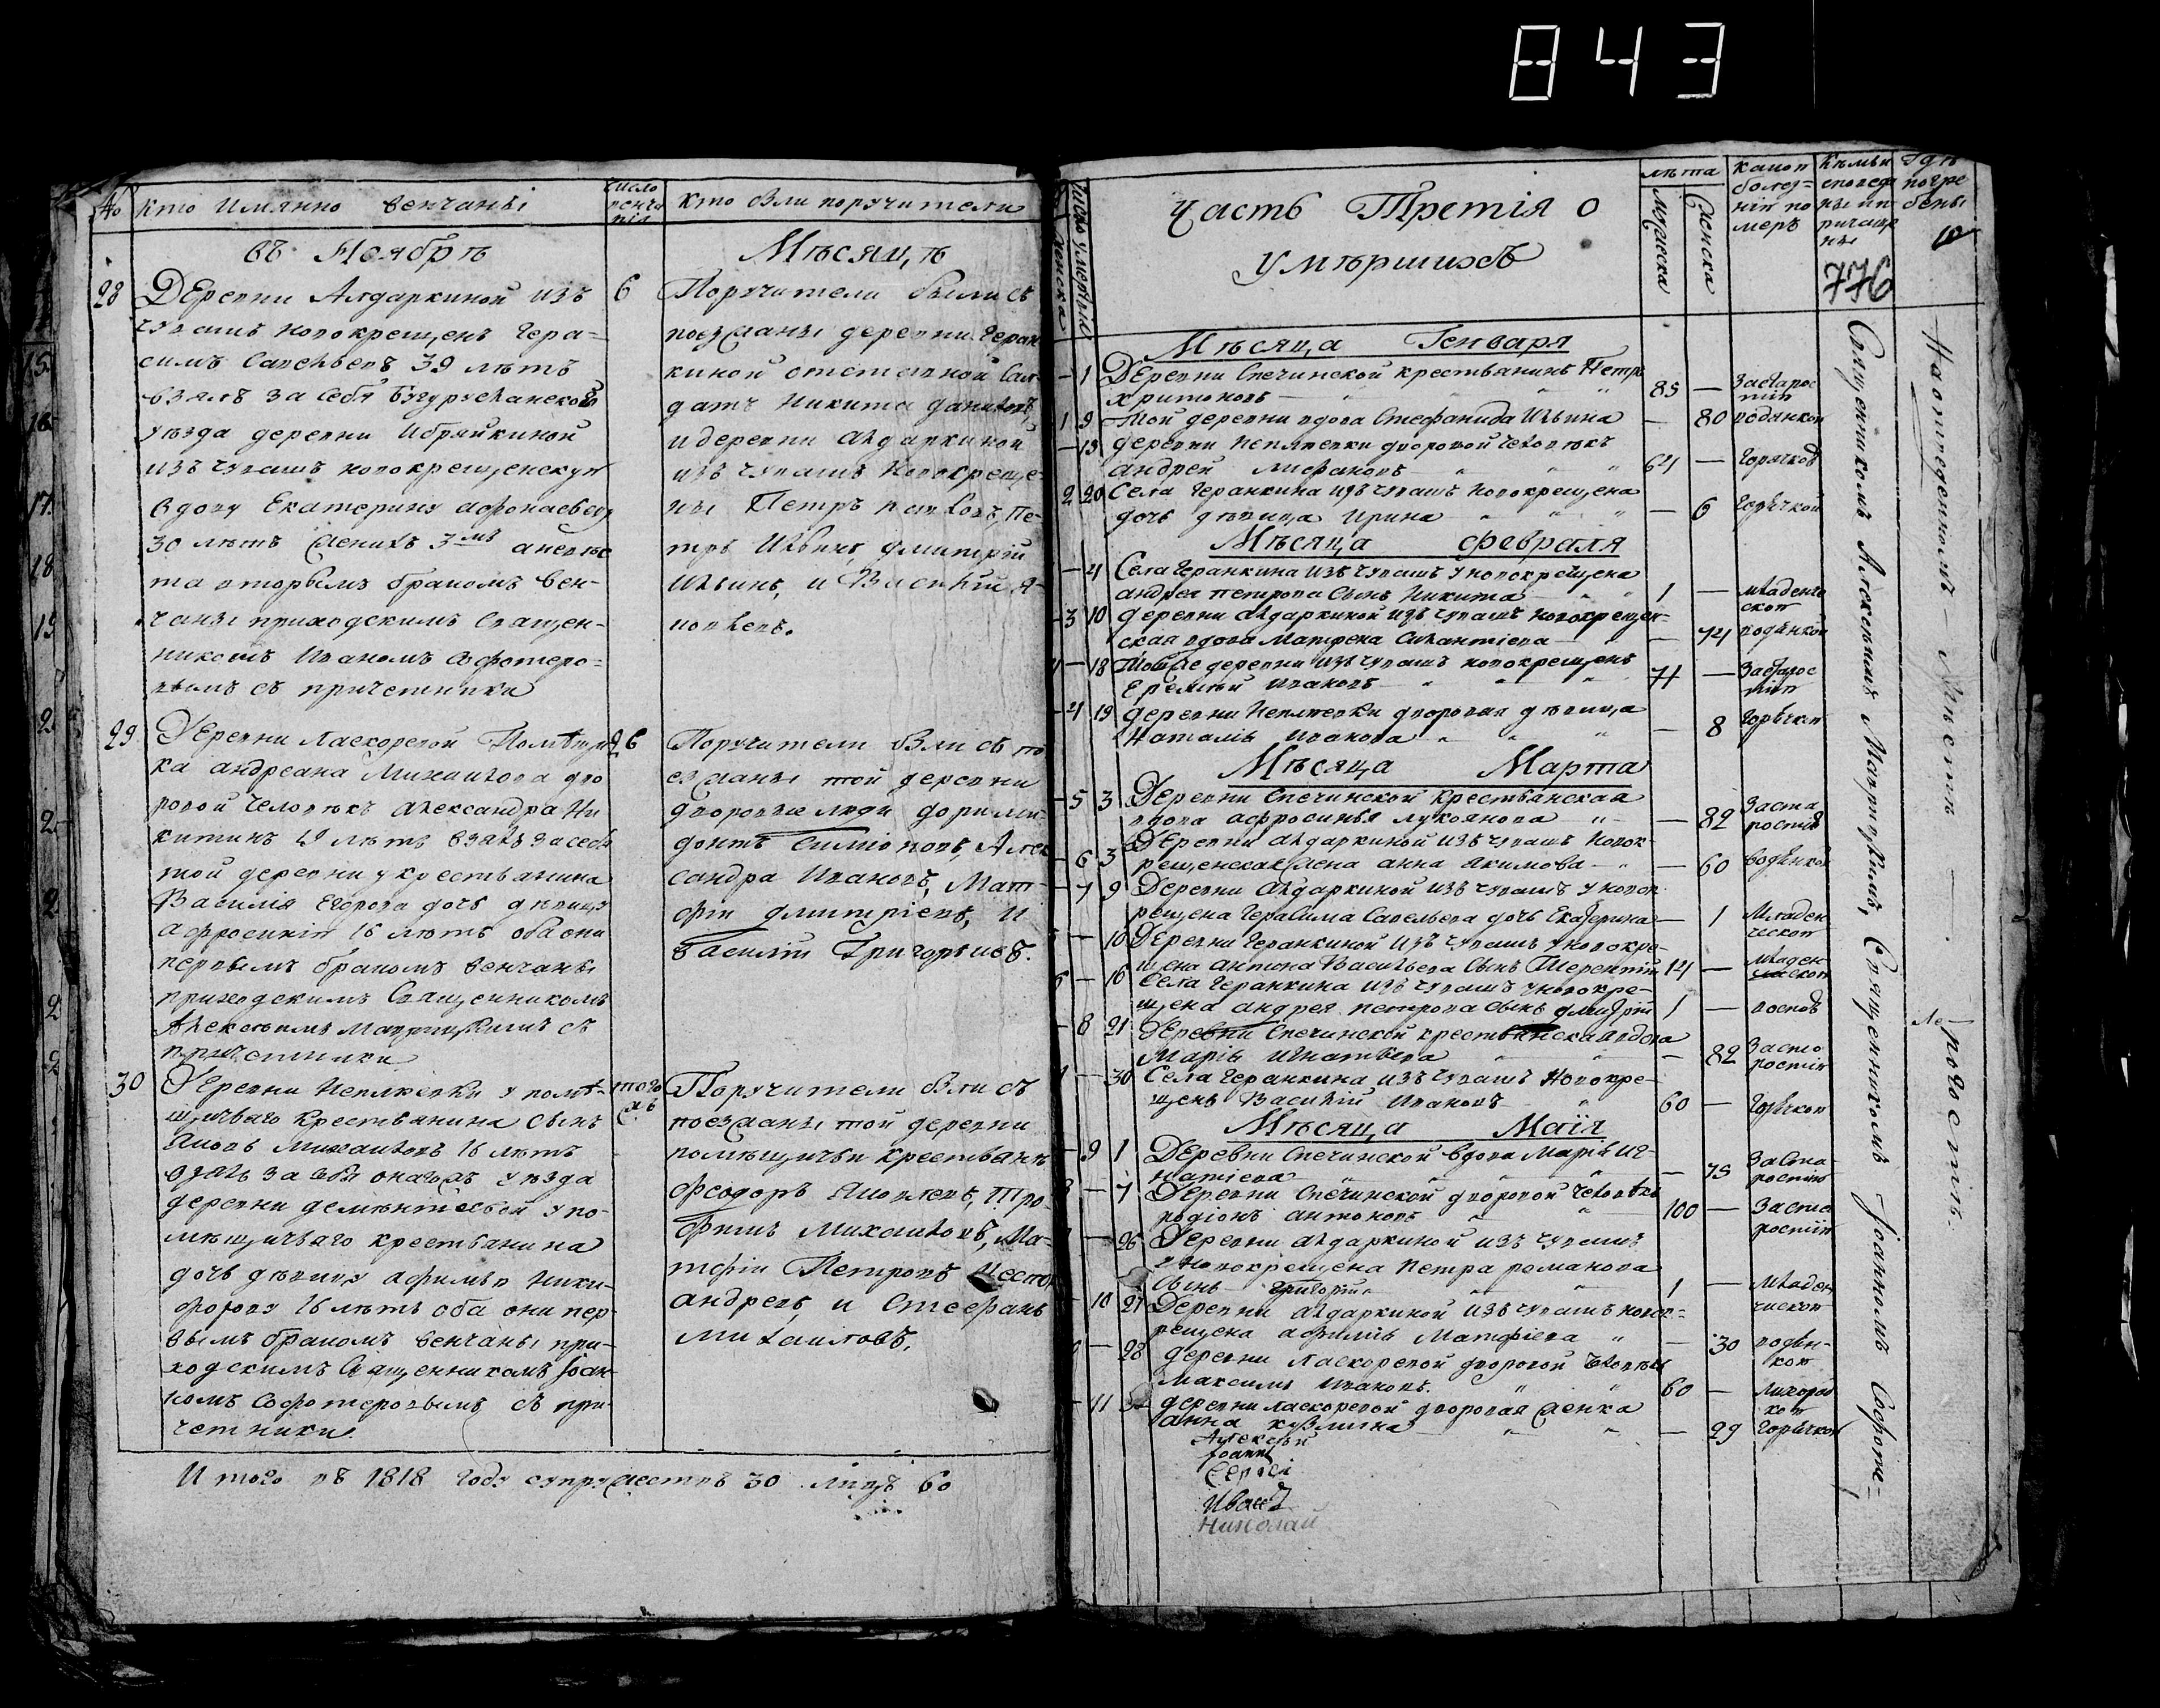 843
№
кто имянно венчаны
число венчанія
кто были поручители
въ Ноябрѣ
Мѣсяцѣ
28
Деревни Алдаркиной изъ
чувашъ новокрещенъ Гера=
симъ Савельевъ 39 лѣтъ
взялъ за себя Бугурусланской
уѣзда деревни Ибряйкиной
изъ чувашъ новокрещенскую
вдову Екатерину Афонасьеву
30 лѣтъ женихъ 3мъ а невѣс
та вторымъ бракомъ вен-
чаны приходскимъ Священ-
никомъ Иваномъ Софотеро=
вымъ съ причетники
6
Поручители были съ
поезжаны деревни Геран
киной отставной Сал-
датъ Никита Даниловъ,
и деревни Алдаркиной
изъ чувашъ новокреще-
ны Петръ Павловъ, Пе-
тръ Ильинъ, Дмитрій
Ильинъ, и Василій Я-
ковлевъ.
29
Деревни Ласкоревой Помѣщи
ка Андреана Михаилова дво
ровой человѣкъ Александра Ни
китинъ 19 лѣтъ взялъ за себя
той деревни у крестьянина
Василія Егорова дочь дѣвицу
Афросинію 16 лѣтъ оба они
первымъ бракомъ венчаны
приходскимъ Священникомъ
Алексѣемъ съ
причетники
26
Поручители были съ по
езжаны той деревни
дворовые люди Дориме-
донтъ Симіоновъ, Алек
сандра Ивановъ, Мат-
фій Дмитріевъ, и
Василій Григорьевъ.
30
Деревни Неплюевки у помѣ-
щичьяго крестьянина сынъ
Яковъ Михаиловъ 16 лѣтъ
взялъ за себя уѣзда
деревни у по-
мѣщичьяго крестьянина
дочь дѣвицу Афимью Ники-
форову 16 лѣтъ оба они пер-
вымъ бракомъ венчаны при-
ходскимъ Священникомъ Іоан-
номъ Софотеровымъ съ при-
четники.
того жъ
Поручители были съ
поезжаны той деревни
помѣщичьи крестьяне
Феодоръ Яковлевъ, Тро-
фимъ Михаиловъ, Ма-
тфій Петровъ
Андреевъ, и Стефанъ
Михаиловъ.
Итого въ 1818 году супружествъ 30 лицъ 60
Часть Третія о
умѣршихъ
число умертвія
лѣта
мужеска
женска
какой болез=
ніи по
меръ
Кѣмъ и
исповеда
ны и п
ричаще
ны
Гдѣ
погре
бены
776
Мѣсяца Генваря
— 1 Деревни Спечинской крестьянинъ Петръ
Харитоновъ 85 — за старос
тію
1 9 той деревни вдова Стефанида Ильина — 80 водянкою
— 13 деревни Неплюевки дворовой человѣкъ
Андрей 64 — Горячкою
2 20 Села Геранкина изъ чувашъ новокрещена
дочь дѣвица Ирина — 6 Горячкой
Мѣсяца Февраля
— 4 Села Геранкина изъ чувашъ у новокрещена
Андрея Петрова сынъ Никита 1 — младенче
ской
3 10 деревни Алдаркиной изъ чувашъ новокрещен-
ская вдова Матрена — 74 водянкой
— 18 Той же деревни изъ чувашъ новокрещенъ
Еремѣй Ивановъ 71 — за старос
тію
4 19 деревни Неплюевки дворовая дѣвица
Наталія Иванова — 8 Горячкой
Мѣсяца Марта
5 3 Деревни Спечинской крестьянская
вдова Афросинья Лукоянова — 82 за ста
ростію
6 3 Деревни Алдаркиной изъ чувашъ новок-
рещенская жена Анна Якимова — 60 водянкой
7 9 Деревни Алдаркиной изъ чувашъ у новок
рещена Герасима Савельева дочь Екатерина — 1 Младен
ческой
— 10 Деревни Геранкиной изъ чувашъ у новокре-
щена Антона Васильева сынъ Терентій 14 — младен
ческой
— 16 Села Геранкина изъ чувашъ у новокре-
щена Андрея Петрова сынъ Дмитрій 1 — воспой
8 21 Деревни Спечинской крестьянская вдова
Марія Игнатьева — 82 за ста
ростію
— 30 Села Геранкина изъ чувашъ Новокре-
щенъ Василій Ивановъ 60 — Горячкой
Мѣсяца Маія
9 1 Деревни Спечинской вдова Марія Иг-
натіева — 75 за ста-
ростію
— 7 Деревни Спечинской дворовой человѣкъ
Родіонъ Антоновъ 100 — за ста
ростію
— 26 Деревни Алдаркиной изъ чувашъ
у новокрещена Петра Романова
сынъ Григорій 1 — младен
ческой
10 27 Деревни Алдаркиной изъ чувашъ новок-
рещена Афимія Матфіева — 30 водян-
кой
— 28 деревни Ласкоревой дворовой человѣкъ
Максимъ Ивановъ. 60 — лихорад
кой
11 деревни Ласкоревой дворовая женка
Анна Кузмина — 29 Горячкой
Алексѣй
Іоаннъ
Сергѣй
Иванъ
Николай
Священникомъ Алексѣемъ Священникомъ Іоанномъ Софоте=
На отведенномъ мѣстѣ